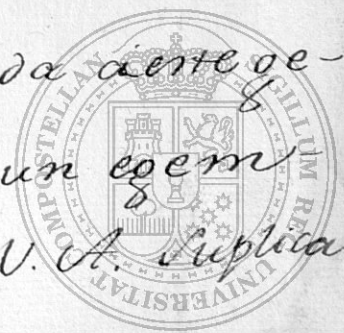 da à este ge-
un egem
V. A. Suplica
SIGILLUM RE UNIVERSIT COMPOSTELLAN